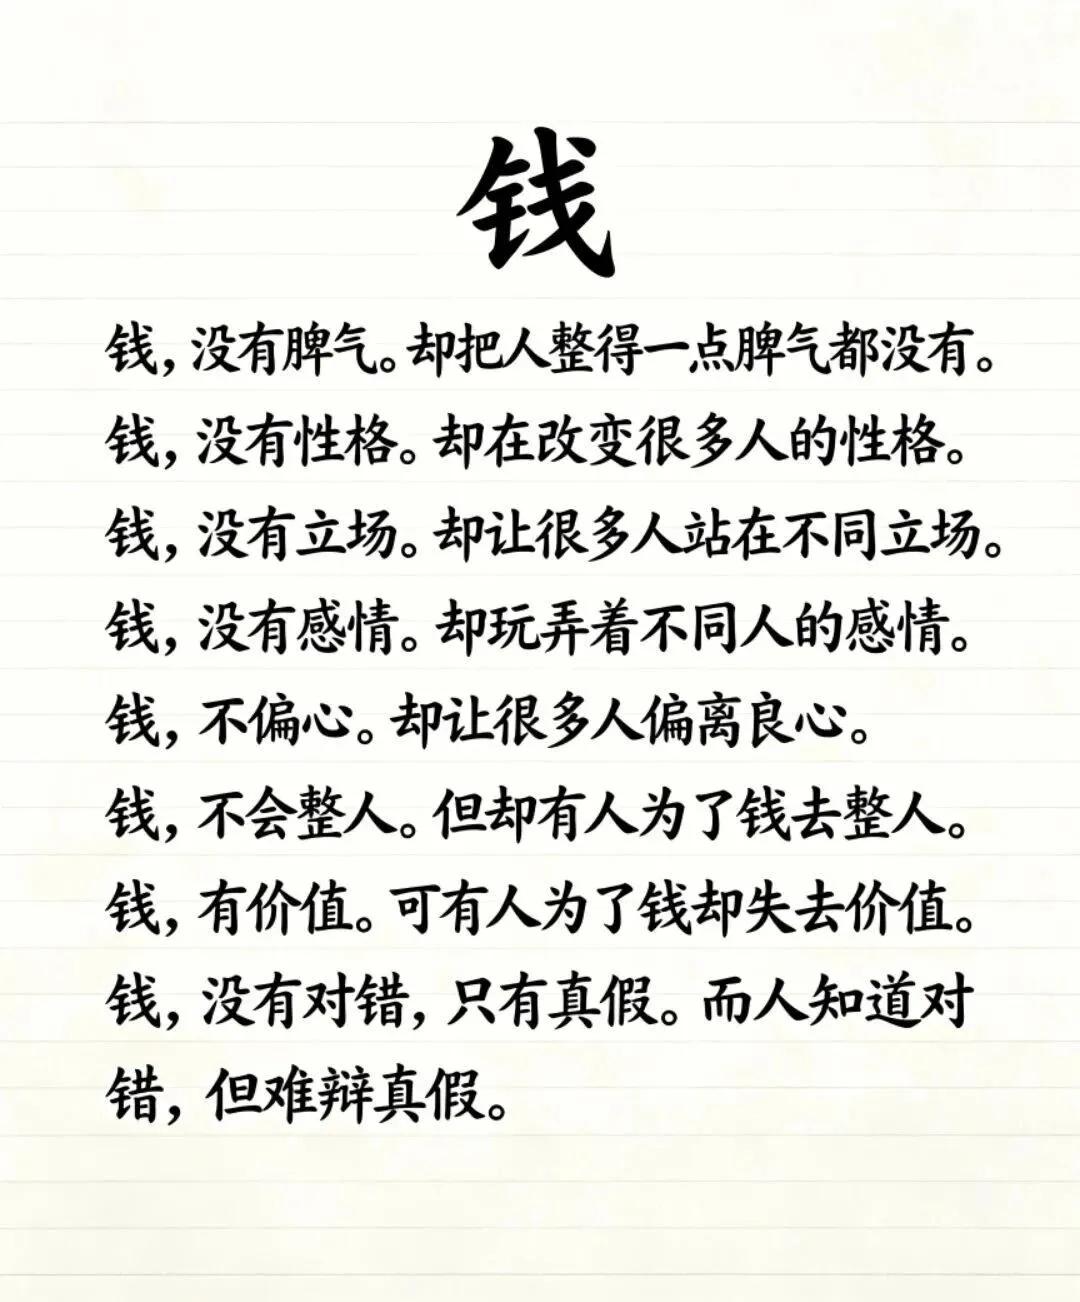 钱
钱，没有脾气。却把人整得一点脾气都没有。
钱，没有性格。却在改变很多人的性格。
钱，没有立场。却让很多人站在不同立场。
钱，没有感情。却玩弄着不同人的感情。
钱，不偏心。却让很多人偏离良心。
钱，不会整人。但却有人为了钱去整人。
钱，有价值。可有人为了钱却失去价值。
钱，没有对错，只有真假。而人知道对
错，但难辩真假。